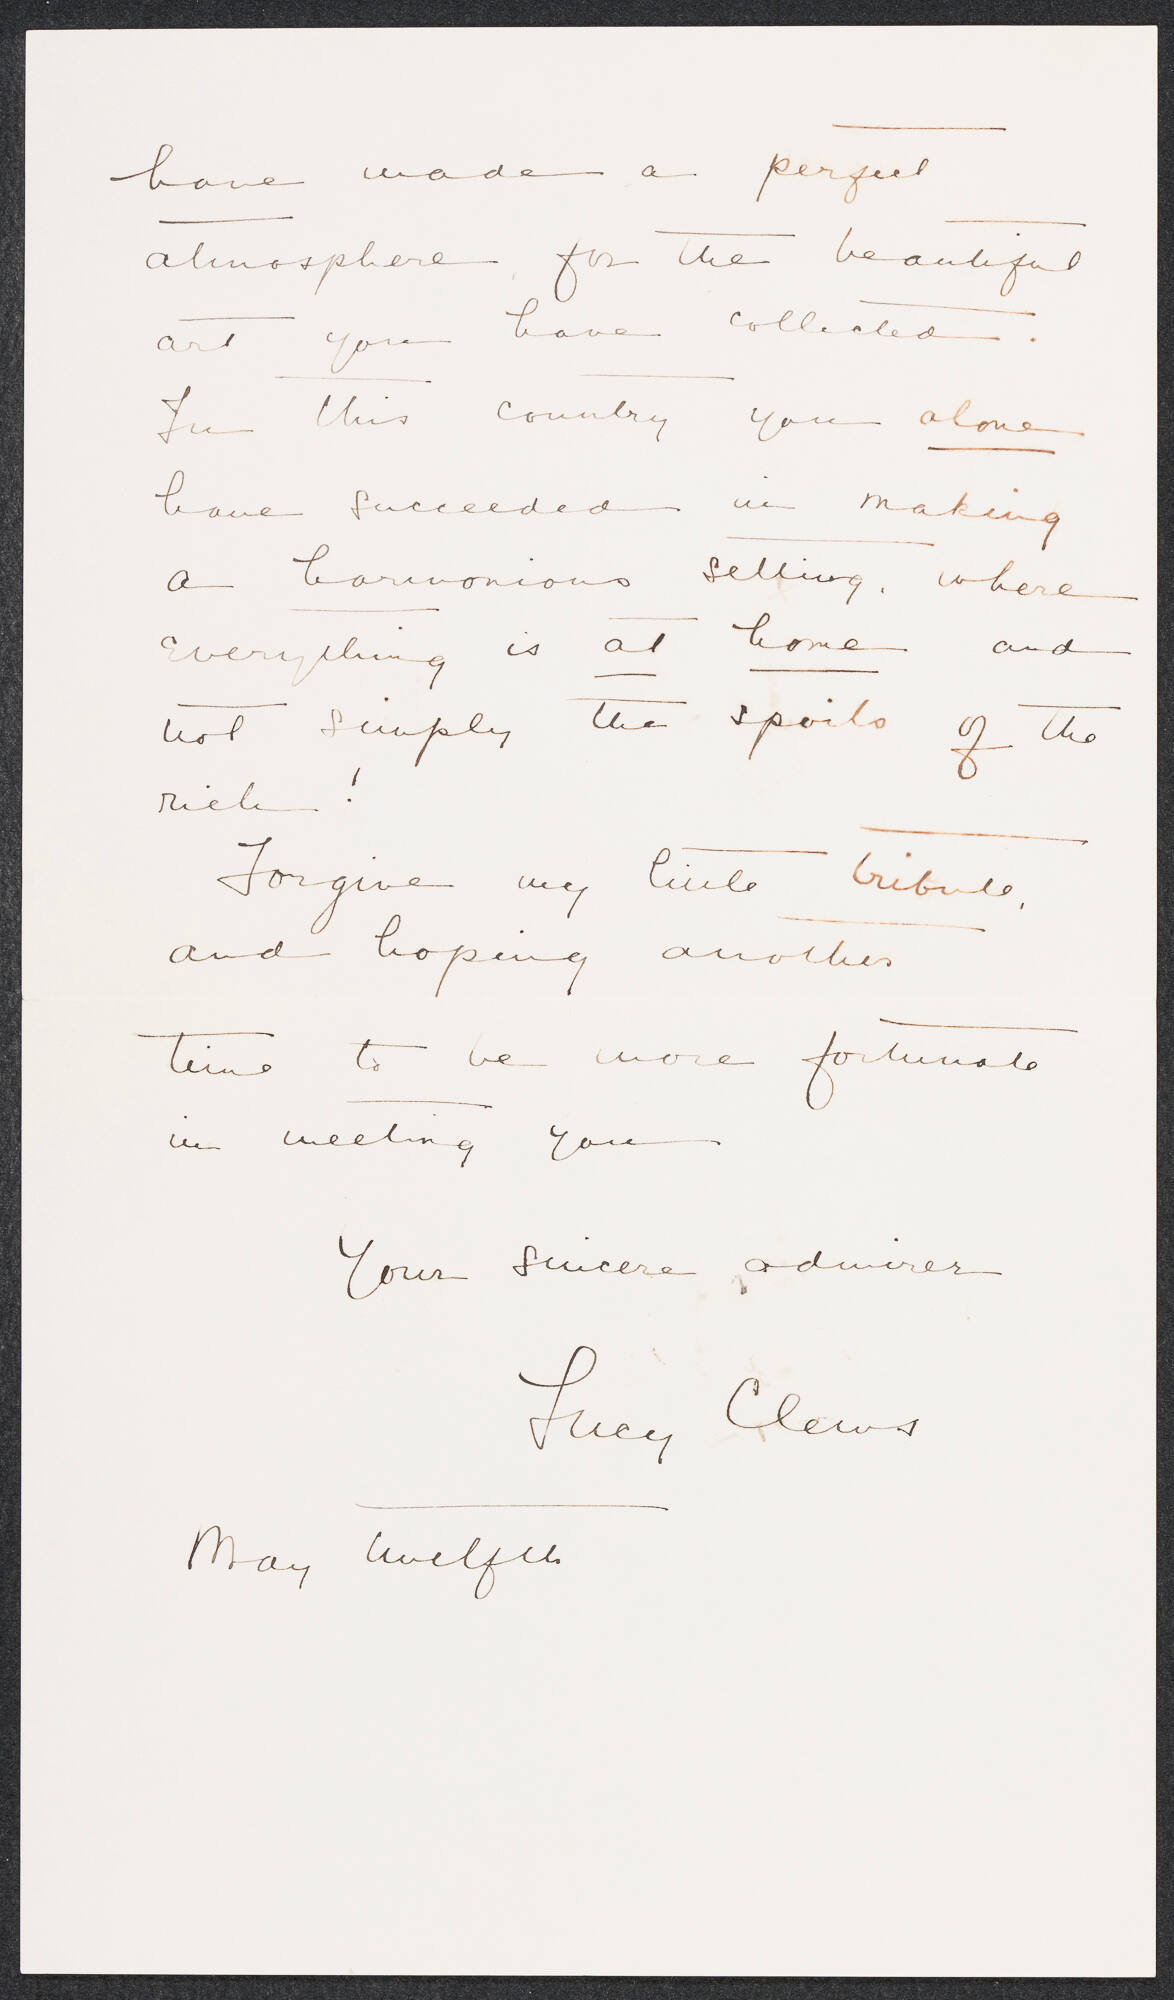 have made a perfect
atmosphere for the beautiful
art you have collected.
In this country you alone
have succeeded in making
a harmonious setting, where
everything is at home and
not simply the spoils of the
rich!
Forgive my little tribute,
and hoping another
time to be more fortunate
in meeting you
Your sincere admirer
Lucy Clews
May twelfth